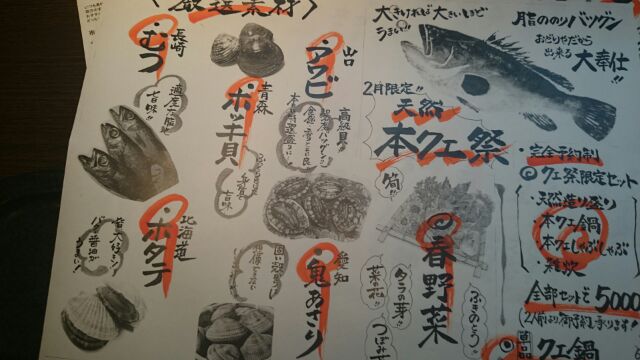 厳選素材〉
大きければ大きいほど
うまい!!
脂ののりバツグン
おどりやだから
出来る 大奉仕!!
2月限定!!
天然
本クエ祭
・完全予約制
◎クエ祭限定セット
・天然造り盛り
・本クエ鍋
・本クエしゃぶしゃぶ
・雑炊
全部セットで5000
クエ鍋
山口
・アワビ
高級貝!!
青森
・ホッキ貝
長崎
・むつ
適度な脂が
旨味!!
北海道
・ホタテ
皆大好き!
バター醤油が
うまい!
愛知
・鬼あさり
固い殻
旨味
筍!!
◎春野菜
ふきのとう!!
タラの芽!!
菜の花!!
つぼみ菜